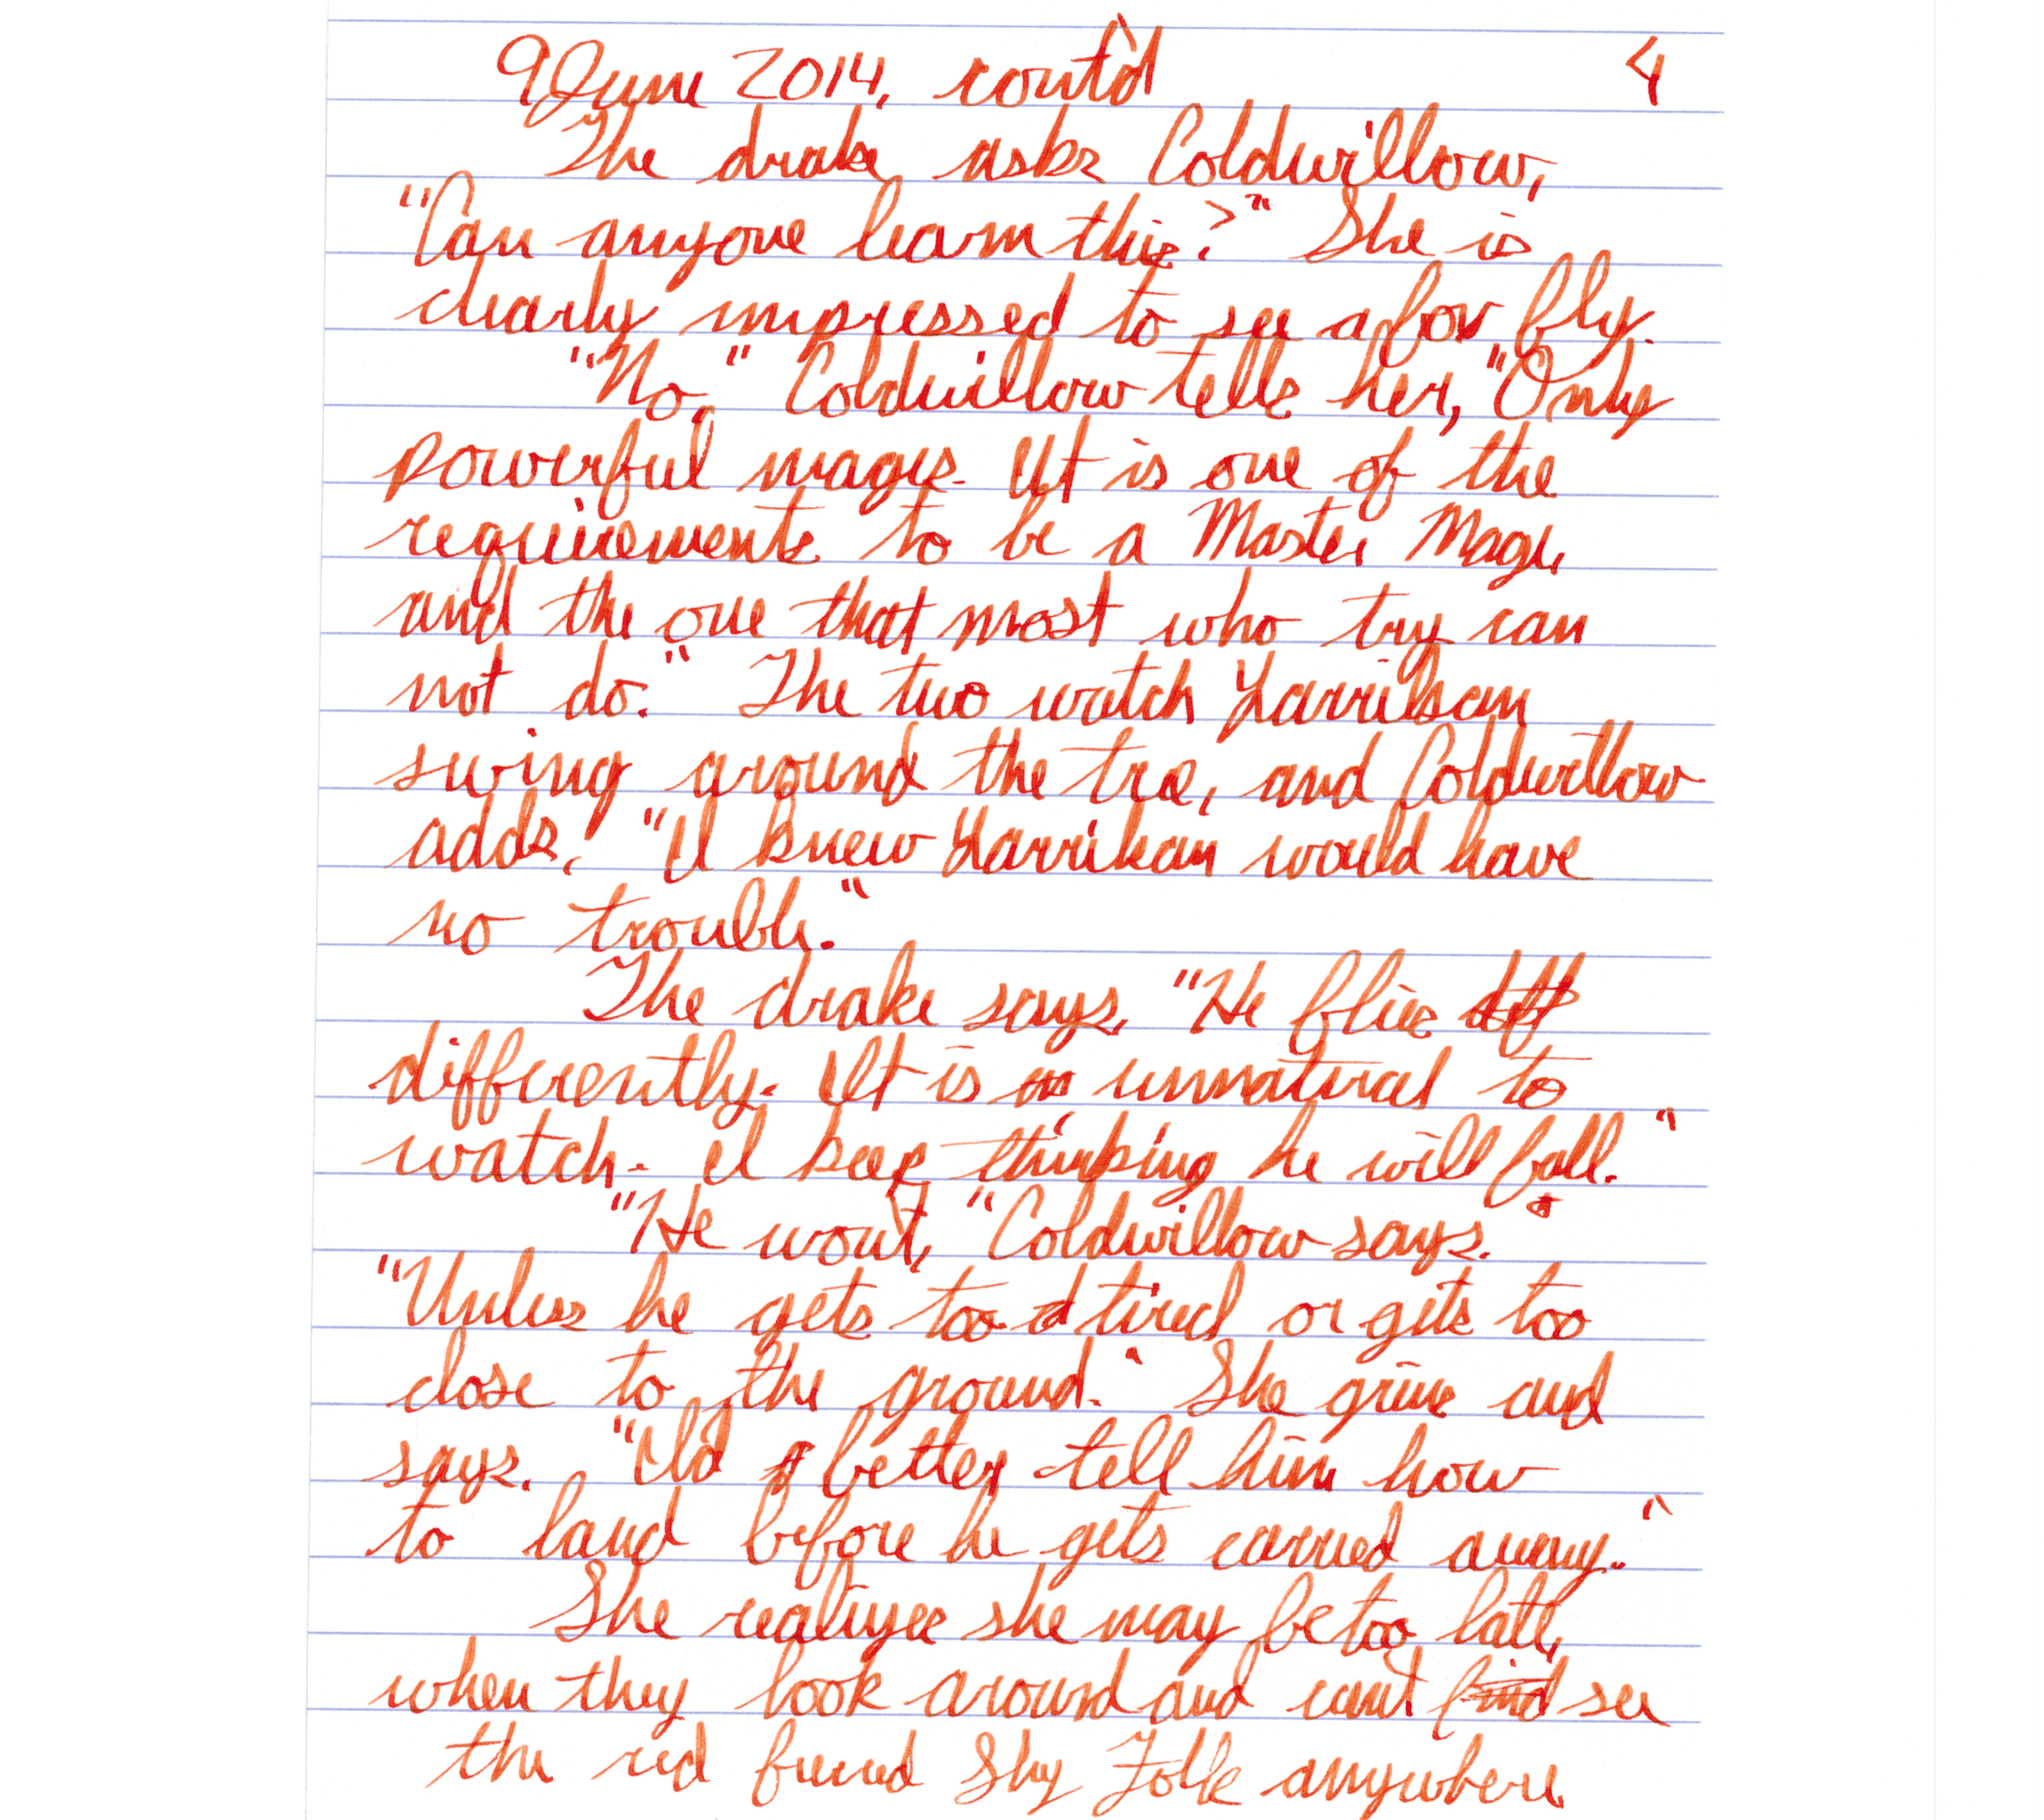 9 June 2014, cont'd 4
The drake asks Coldwillow,
"Can anyone learn this?" She is
clearly impressed to see a fox fly.
"No," Coldwillow tells her, "Only
powerful mages. It is one of the
requirements to be a Master Mage,
and the one that most who try can
not do." The two watch Yarrikan
swing around the tree, and Coldwillow
adds, "I knew Yarrikan would have
no trouble."
The drake says, "He flies diff
differently. It is an unnatural to
watch. I keep thinking he will fall."
"He won't," Coldwillow says.
"Unless he gets too tired or gets too
close to the ground." She grins and
says. "I'd better tell him how
to land before he gets carried away."
She realizes she may be too late,
when they look around and can't find see
the red furred Shy Folk anywhere